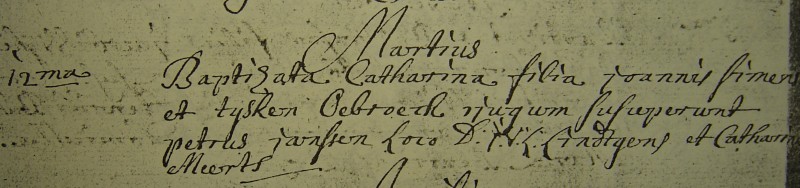 Martius
12ma Baptizata Catharina filia joannis simens
et tysken Oebroeck jugum susceperunt
petrus janssen Loco D: Lindtgens et Catharin
Meerts